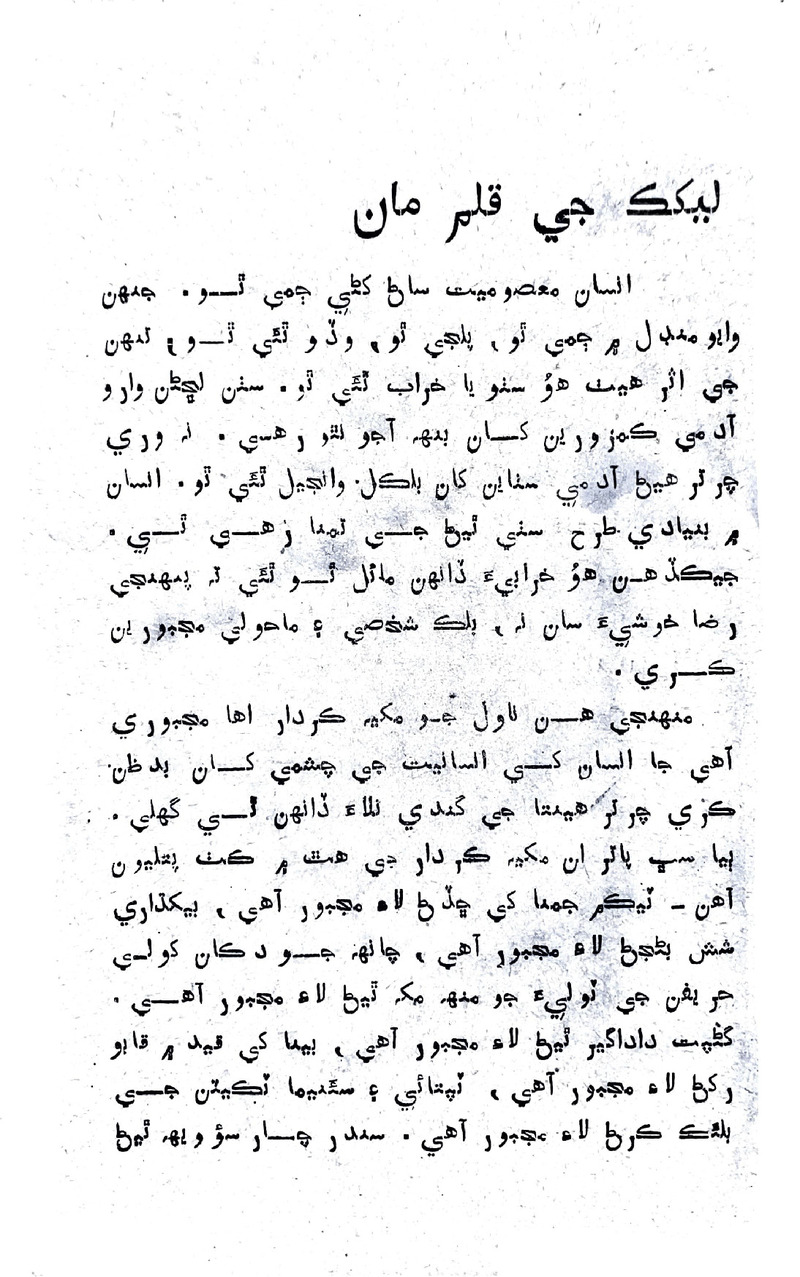 ليکڪ جي قلم مان
انسان معصوميت ساڻ کڻي ڄمي ٿو. جنهن
وايو منڊل ۾ ڄمي ٿو، پلجي ٿو، وڏو ٿئي ٿو، تنهن
جي اثر هيٺ هوُ سٺو يا خراب ٿئي ٿو. سٺن لڇڻن وارو
آدمي ڪمزورين کان بنهہ آجو نٿو رهي. نہ وري
چرتر هيڻ آدمي سٺاين کان بلڪل وانجيل ٿئي ٿو. انسان
۾ بنيادي طرح سٺي ٿيڻ جي تمنا رهي ٿي.
جيڪڏهن هوُ خرابيءَ ڏانهن مائل ٿو ٿئي تہ پنهنجي
رضا خوشيءَ سان نہ، بلڪ شخصي ۽ ماحولي مجبورين
ڪري.
منهنجي هن ناول جو مکيہ ڪردار اها مجبوري
آهي جا انسان کي انسانيت جي چشمي کان بدظن
ڪري چرتر هينتا جي گندي تلاءَ ڏانهن ٿي گهلي.
ٻيا سڀ پاتر ان مکيہ ڪردار جي هٿ ۾ ڪٺ پتليون
آهن ـ ٽيڪم جمنا کي ڇڏڻ لاءِ مجبور آهي، بيکڌاري
شش بڻجڻ لاءِ مجبور آهي، چانهہ جو دڪان کولي
حريفن جي ٽوليءَ جو منهہ مکہ ٿيڻ لاءِ مجبور آهي.
گڻپت داداگير ٿيڻ لاءِ مجبور آهي، بينا کي قيد ۾ قابو
رکڻ لاءِ مجبور آهي، ٽپٽائي ۽ سئنيما ٽڪيٽن جي
بلئڪ ڪرڻ لاءِ مجبور آهي. سندر چار سؤ ويهہ ٿيڻ